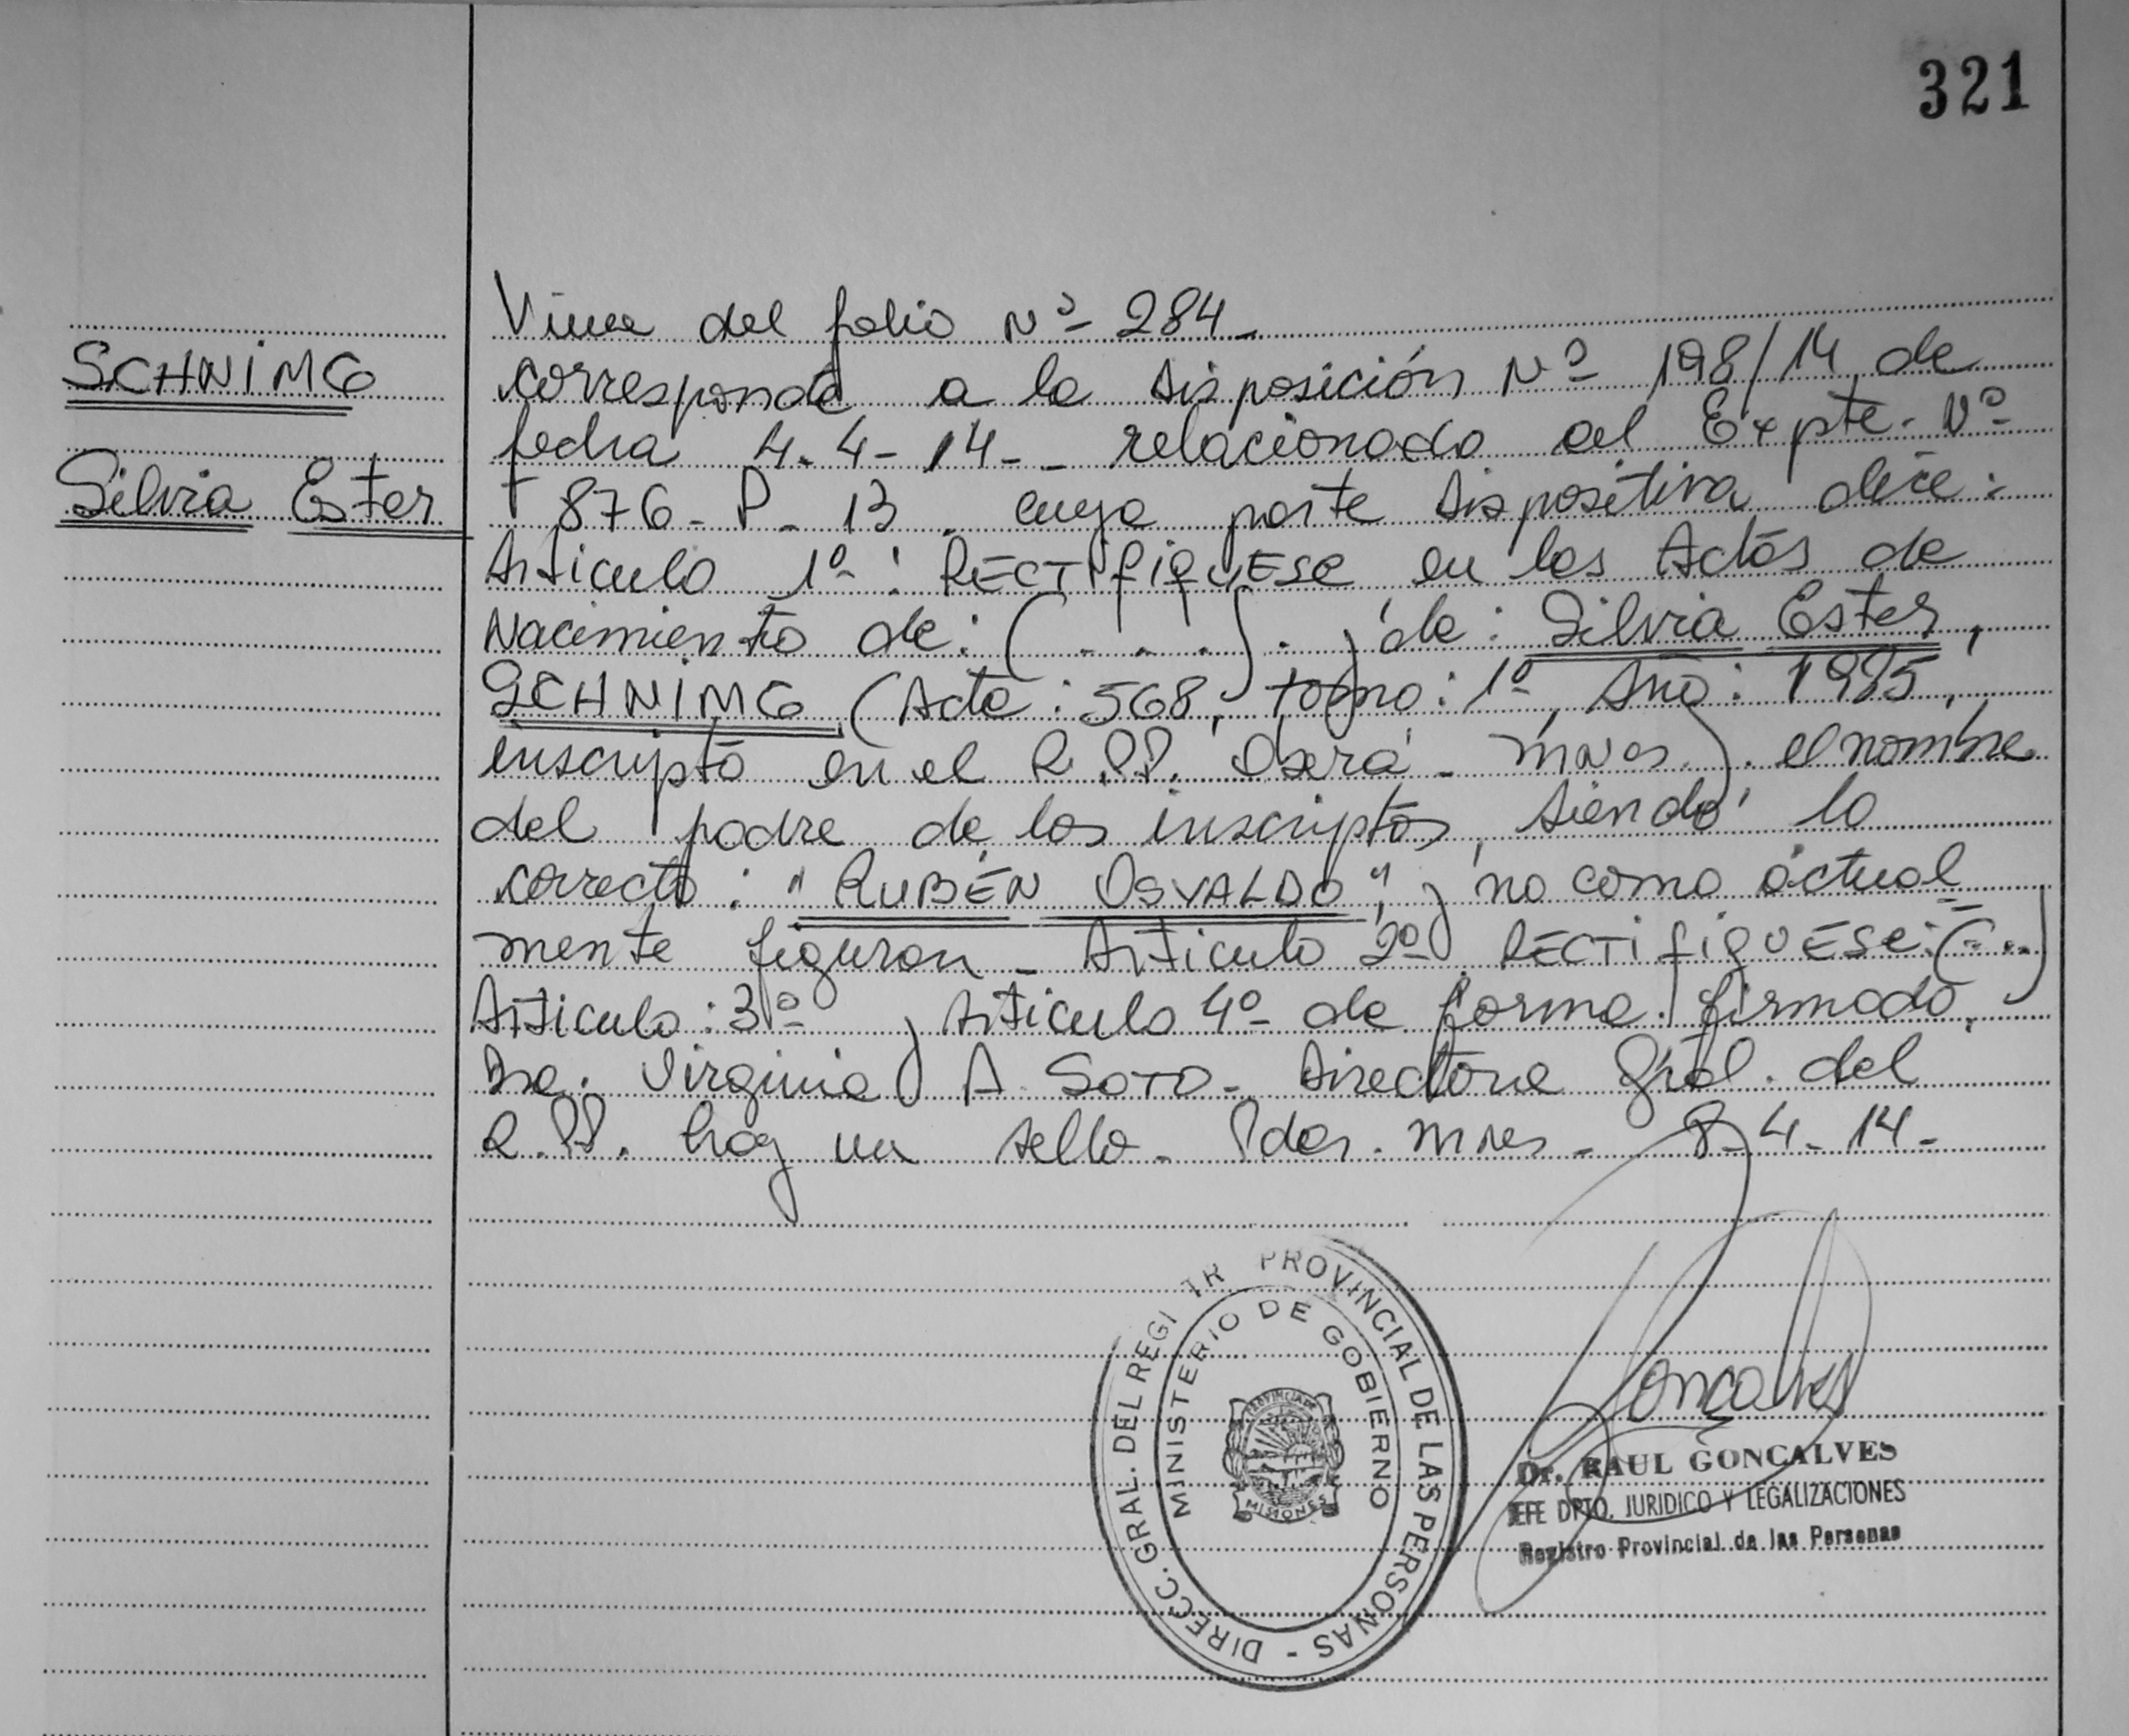 321
Viene del folio Nº 284-
SCHNIMG
corresponde a la disposición Nº 198/14 de
fecha 4-4-14-- relacionado al Expte. Nº
Silvia Ester
876-P-13. cuya parte dispositiva dice:
Artículo 1º: RECTIFIQUESE en las Actas de
Nacimiento de: (...). y de: Silvia Ester,
SCHNIMG (Acta: 568, tomo: 1º, Año: 1985,
inscripta en el R.P.P. Oberá - Mnes.). el nombre
del padre de los inscriptos, siendo lo
correcto: "RUBÉN OSVALDO", y no como actual=
mente figuran - Artículo 2º RECTIFIQUESE: (...)
Artículo: 3º y Artículo 4º de forma. firmado.
Dra. Virginia A. SOTO- Directora Gral. del
R.P.P. hay un sello - Pdas. Mnes - 8-4-14-
DIRECC. GRAL. DEL REGI TR PROVINCIAL DE LAS PERSONAS -
MINISTERIO DE GOBIERNO
PROVINCIA DE
MISIONES
Goncalves
Dr. RAUL GONCALVES
JEFE DPTO. JURIDICO Y LEGALIZACIONES
Registro Provincial de las Personas